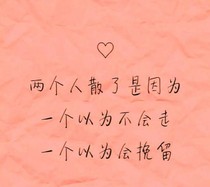 两个人散了是因为
一个以为不会走
一个以为会挽留